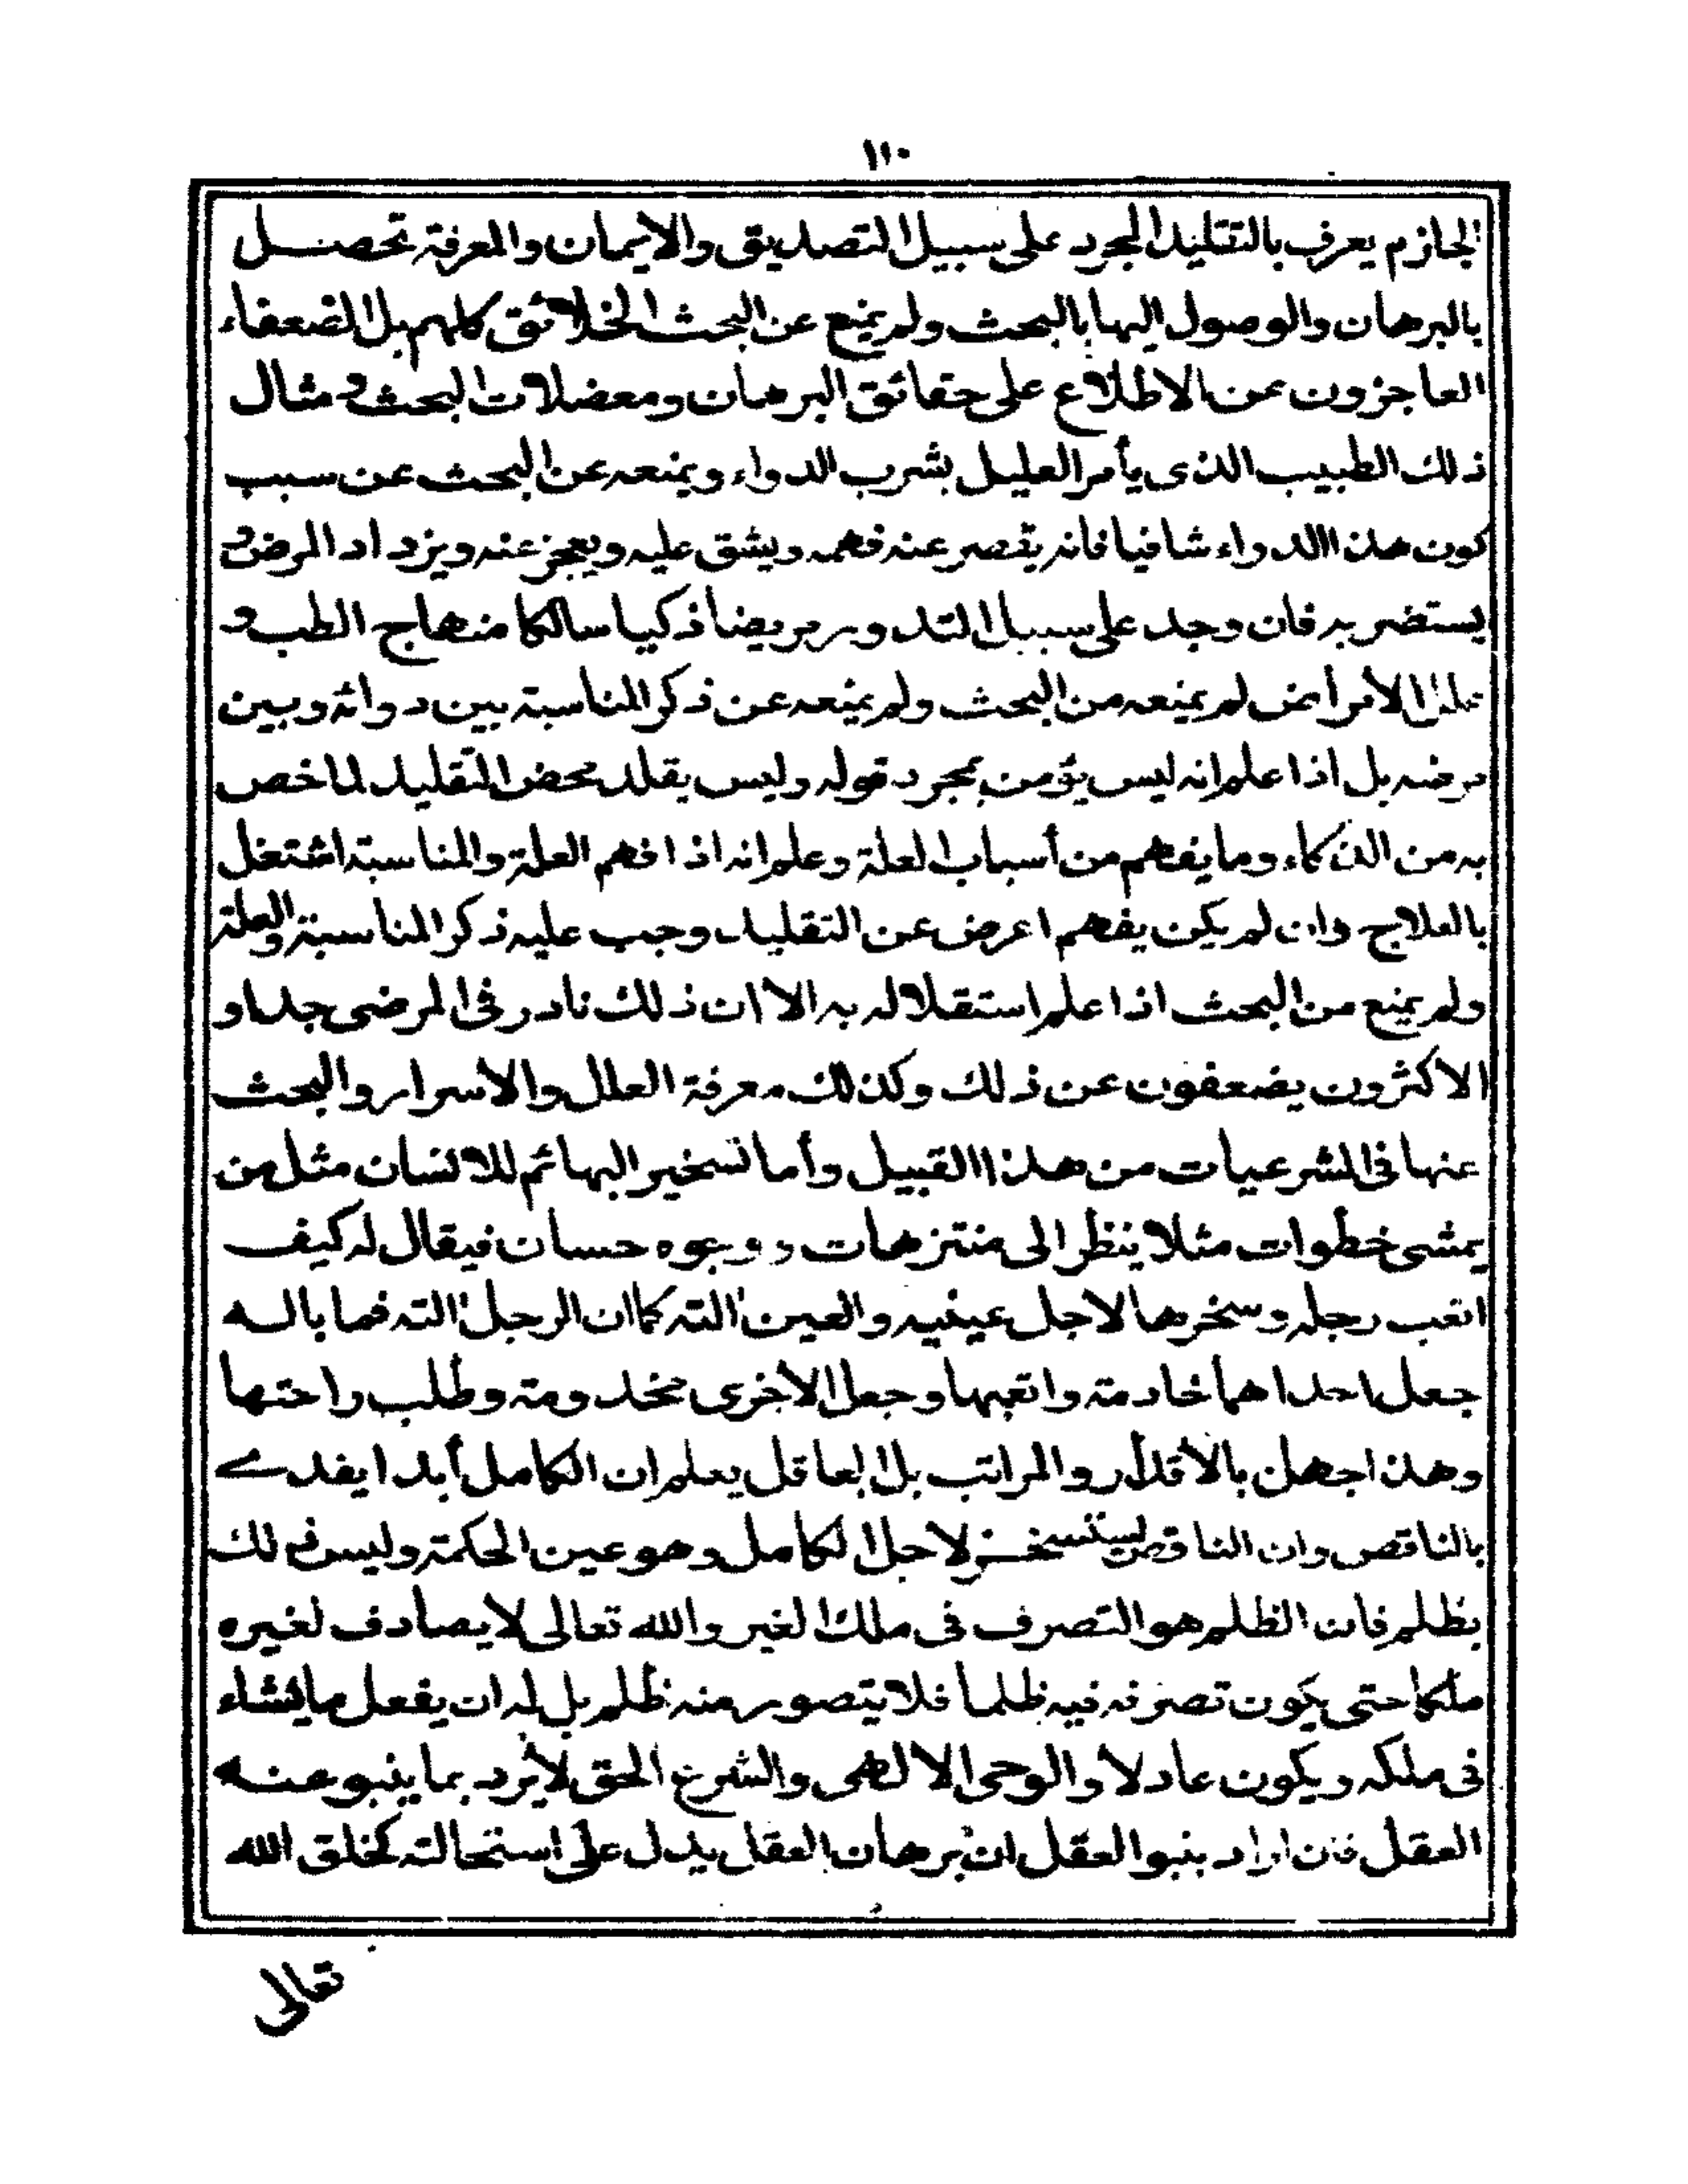 ١١٠
الجازم يعرف بالتقليد المجرد على سبيل التصديق والايمان والمعرفة تحصل
بالبرهان والوصول اليها بالبحث ولم يمنع عن البحث الخلائق كلهم بل الضعفاء
العاجزون عن الاطلاع على حقائق البرهان ومعضلات البحث ومثال
ذلك الطبيب الذى يأمر العليل بشرب الدواء ويمنعه عن البحث عن سبب
كون هذا الدواء شافيا فانه يقصر عنه فهمه ويشق عليه ويعجز عنه ويزداد المرض و
يستضر به فان وجد على سبيل التدور مريضا ذكيا سالكا منهاج الطب و
علل الأمراض لم يمنعه من البحث ولم يمنعه عن ذكر المناسبة بين دوائه وبين
مرضه بل اذا علم انه ليس يؤمن بمجرد قوله وليس يقلد محض التقليد لما خص
به من الذكاء وما يفهم من أسباب العلة وعلم انه اذا فهم العلة والمناسبة اشتغل
بالعلاج وان لم يكن يفهم اعرض عن التقليد وجب عليه ذكر المناسبة والعلة
ولم يمنع من البحث اذا علم استقلاله به الا ان ذلك نادر فى المرضى جدا و
الاكثرون يضعفون عن ذلك وكذلك معرفة العلل والأسرار والبحث
عنها فى الشرعيات من هذا القبيل وأما تسخير البهائم للانسان مثل من
يمشى خطوات مثلا ينظر الى منتزهات ووجوه حسان فيقال له كيف
اتعب رجله وسخرها لاجل عينيه والعين الته كما ان الرجل الته فما باله
جعل احداهما خادمة واتعبها وجعل الأخرى مخدومة وطلب راحتها
وهذا جهل بالأقدار والمراتب بل العاقل يعلم ان الكامل أبدا يفدے
بالناقص وان الناقص يستسخر لاجل الكامل وهو عين الحكمة وليس ذلك
بظلم فان الظلم هو التصرف فى ملك الغير والله تعالى لا يصادف لغيره
ملكا حتى يكون تصرفه فيه ظلما فلا يتصور منه ظلم بل له ان يفعل ما يشاء
فى ملكه ويكون عادلا والوحى الالهى والشرع الحق لا يرد بما ينبو عنه
العقل فان اراد بنبو العقل ان برهان العقل يدل على استحالته كخلق الله
تعالى